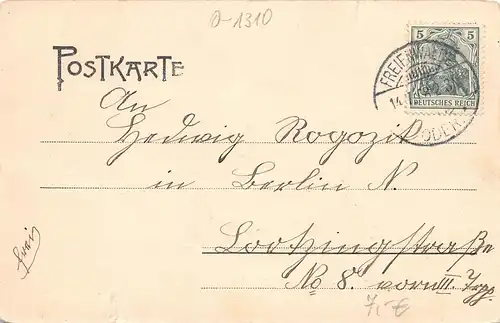 0-1310
POSTKARTE
5 5
FREIENWALDE
14.
DEUTSCHES REICH
ODER
An
Hedwig Rogozik
in Berlin N.
Lootzingstraße
No 8. vorn III. Trpp.
frei
7,- €